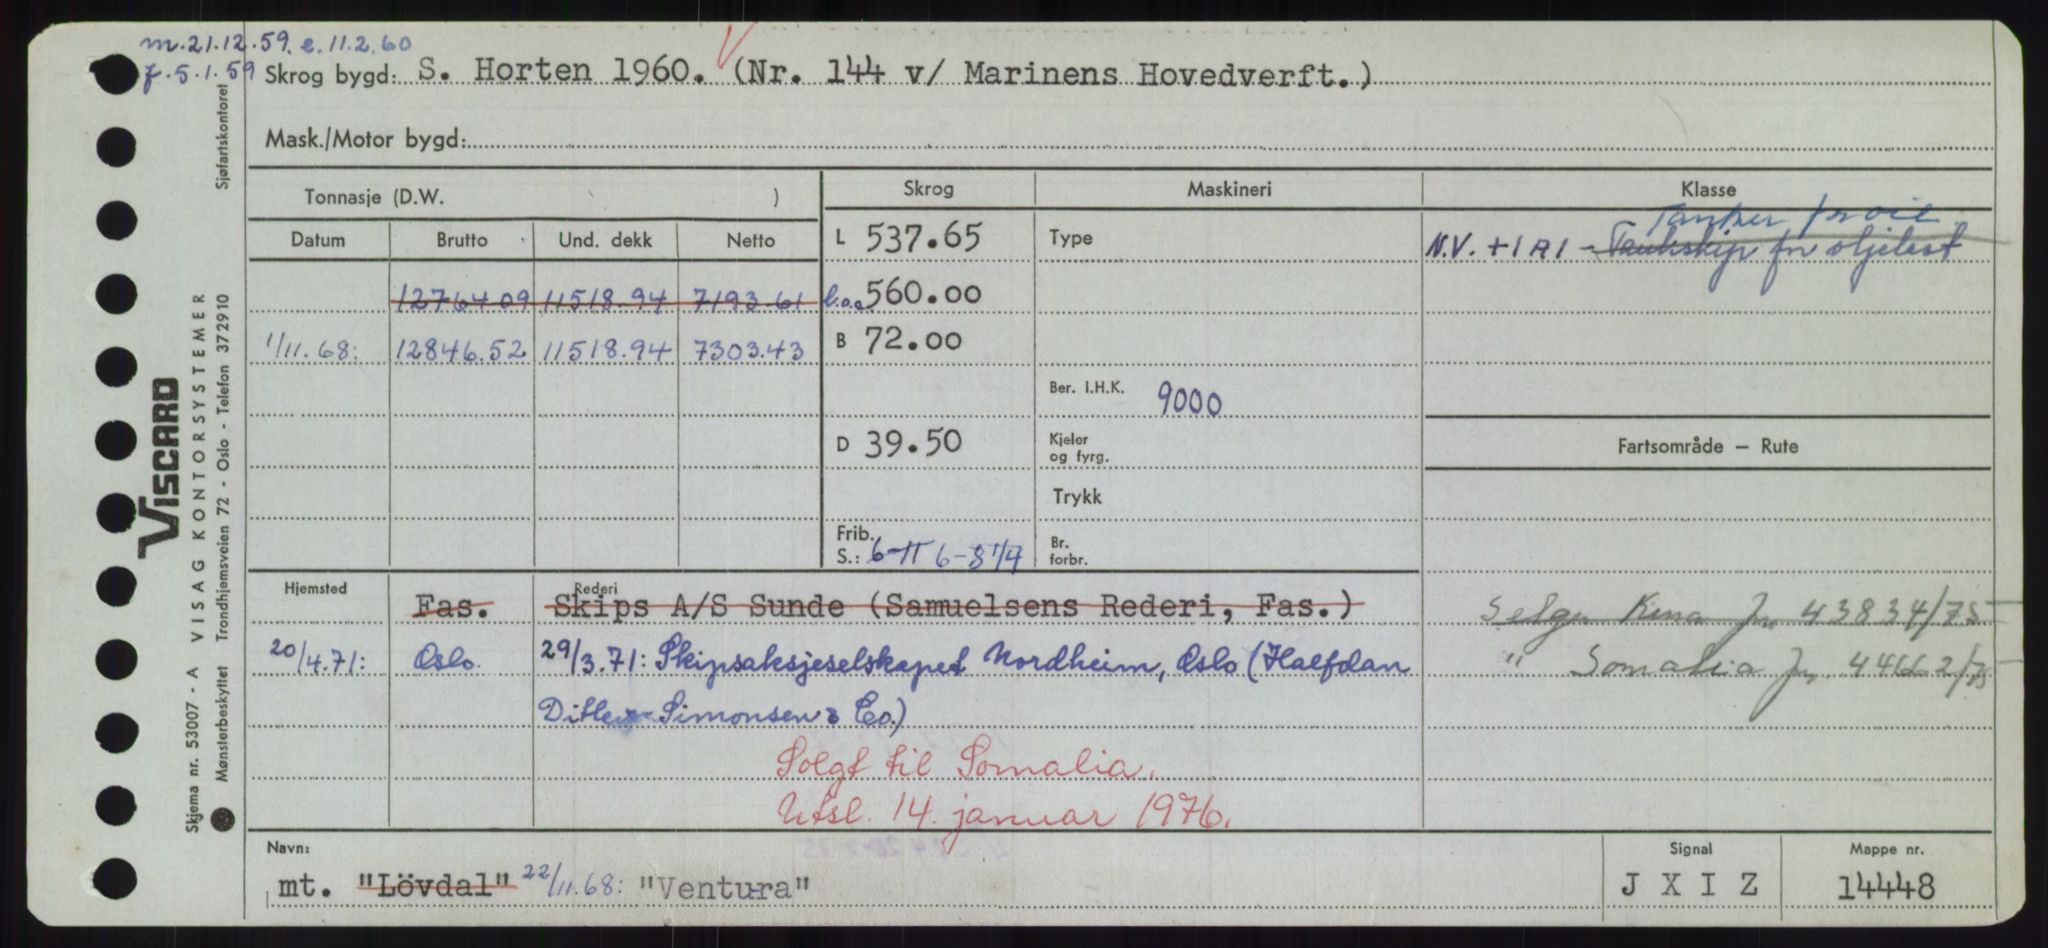 m. 21.12.59. e. 11.2.60
f. 5.1.59
Skrog bygd: S. Horten 1960. (Nr. 144 v/ Marinens Hovedverft.)
Mask./Motor bygd:
Tonnasje (D.W. )
Skrog
Maskineri
Klasse
Datum
Brutto
Und. dekk
Netto
L 537.65
Type
Tanker for oil
N.V. + 1 A 1 - Tankskip for oljelast
12764.09 11518.94 7193.61
l.o.a. 560.00
1/11.68: 12846.52 11518.94 7303.43
B 72.00
Ber. I.H.K. 9000
D 39.50
Kjeler
og fyrg.
Fartsområde — Rute
Trykk
Frib.
S.: 6-11 6-8 1/4
Br.
forbr.
Hjemsted
Rederi
Fas. Skips A/S Sunde (Samuelsens Rederi, Fas.)
Selges Kina Jr. 43834/75
20/4.71: Oslo. 29/3.71: Skipsaksjeselskapet Nordheim, Oslo (Halfdan
" Somalia Jr. 44662/75
Ditlev-Simonsen & Co.)
Solgt til Somalia.
Utsl. 14. januar 1976.
Navn:
mt. "Lövdal" 22/11.68: "Ventura"
Signal
J X I Z
Mappe nr.
14448
VISCARD
Skjema nr. 53007 - A VISAG KONTORSYSTEMER Sjøfartskontoret
Mønsterbeskyttet Trondhjemsveien 72 - Oslo - Telefon 372910